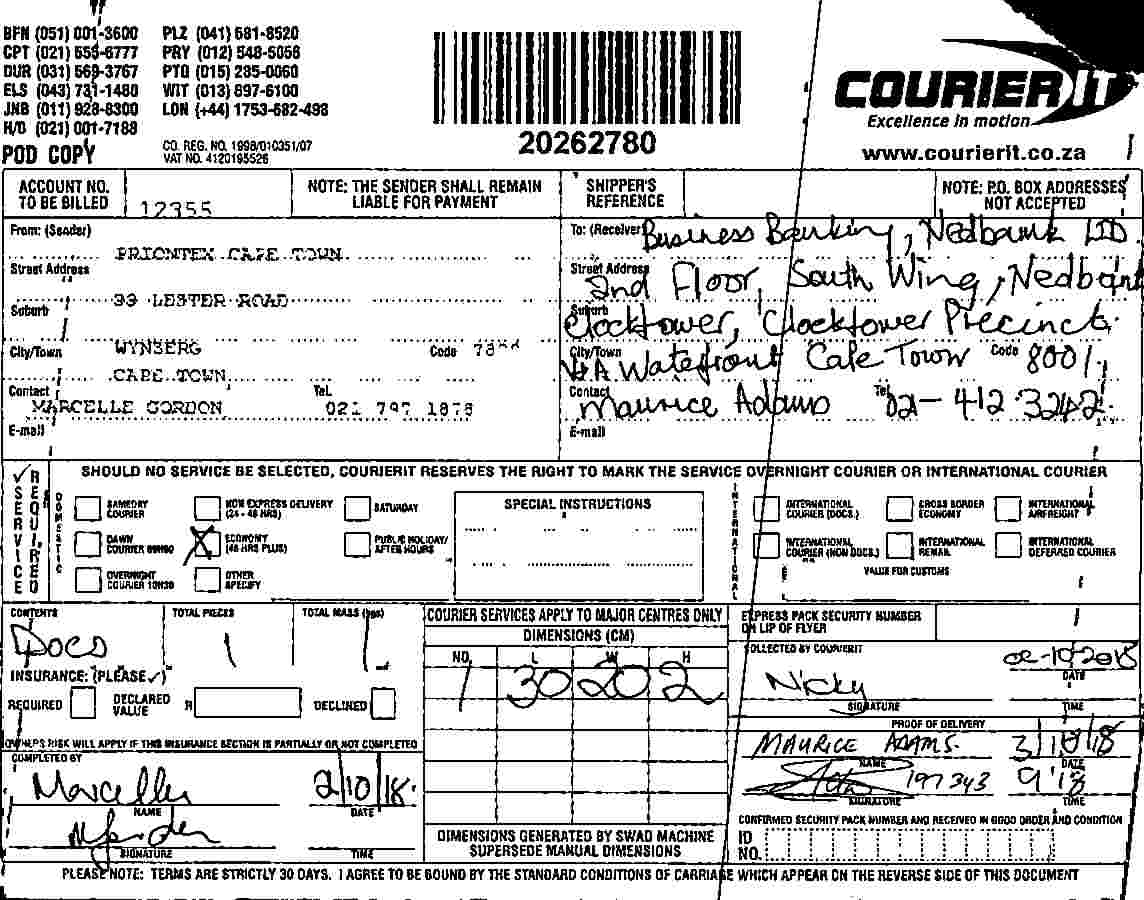 BFN (051) 001-3600 PLZ (041) 581-8520
CPT (021) 555-6777 PRY (012) 548-5056
DUR (031) 569-3767 PTG (015) 285-0060
ELS (043) 731-1480 WIT (013) 897-6100
JNB (011) 928-8300 LON (+44) 1753-682-498
H/O (021) 001-7188
POD COPY
CO. REG. NO. 1998/010351/07
VAT NO. 4120195526
20262780
COURIER IT
Excellence in motion
www.courierit.co.za
ACCOUNT NO. TO BE BILLED 12355
NOTE: THE SENDER SHALL REMAIN LIABLE FOR PAYMENT
SHIPPER'S REFERENCE
NOTE: P.O. BOX ADDRESSES NOT ACCEPTED
From: (Sender) PRIONTEX CAPE TOWN
Street Address
33 LESTER ROAD
Suburb
City/Town WYNBERG Code
CAPE TOWN
Contact Tel.
MARCELLE GORDON 021 797 1878
E-mail
To: (Receiver) Business Banking, Nedbank LTD
Street Address 2nd Floor, South Wing, Nedbank
Suburb Clocktower, Clocktower Precinct
City/Town V&A Waterfront Cape Town Code 8001
Contact Maurice Adams Tel 021-412 3242
E-mail
SHOULD NO SERVICE BE SELECTED, COURIERIT RESERVES THE RIGHT TO MARK THE SERVICE OVERNIGHT COURIER OR INTERNATIONAL COURIER
✓ SERVICE REQUIRED
DOMESTIC
SAMEDAY COURIER
NON EXPRESS DELIVERY (24 - 48 HRS)
SATURDAY
DAWN COURIER
X ECONOMY (48 HRS PLUS)
PUBLIC HOLIDAY/ AFTER HOURS
OVERNIGHT COURIER 10H30
OTHER SPECIFY
SPECIAL INSTRUCTIONS
INTERNATIONAL
INTERNATIONAL COURIER (DOCS.)
CROSS BORDER ECONOMY
INTERNATIONAL AIRFREIGHT
INTERNATIONAL COURIER (NON DOCS.)
INTERNATIONAL REMAIL
INTERNATIONAL DEFERRED COURIER
VALUE FOR CUSTOMS
CONTENTS TOTAL PIECES TOTAL MASS (kgs)
Docs 1 1
INSURANCE: (PLEASE ✓)
REQUIRED DECLARED VALUE R DECLINED
OWNERS RISK WILL APPLY IF THIS INSURANCE SECTION IS PARTIALLY OR NOT COMPLETED
COMPLETED BY
Marcelle 2/10/18
NAME DATE
SIGNATURE TIME
COURIER SERVICES APPLY TO MAJOR CENTRES ONLY
DIMENSIONS (CM)
NO. L W H
1 30 20 2
DIMENSIONS GENERATED BY SWAD MACHINE
SUPERSEDE MANUAL DIMENSIONS
EXPRESS PACK SECURITY NUMBER
ON LIP OF FLYER
COLLECTED BY COURIERIT
Nicky 02-10-2018
DATE
SIGNATURE TIME
PROOF OF DELIVERY
MAURICE ADAMS. 3/10/18
NAME DATE
197343 9:18
SIGNATURE TIME
CONFIRMED SECURITY PACK NUMBER AND RECEIVED IN GOOD ORDER AND CONDITION
ID NO.
PLEASE NOTE: TERMS ARE STRICTLY 30 DAYS. I AGREE TO BE BOUND BY THE STANDARD CONDITIONS OF CARRIAGE WHICH APPEAR ON THE REVERSE SIDE OF THIS DOCUMENT